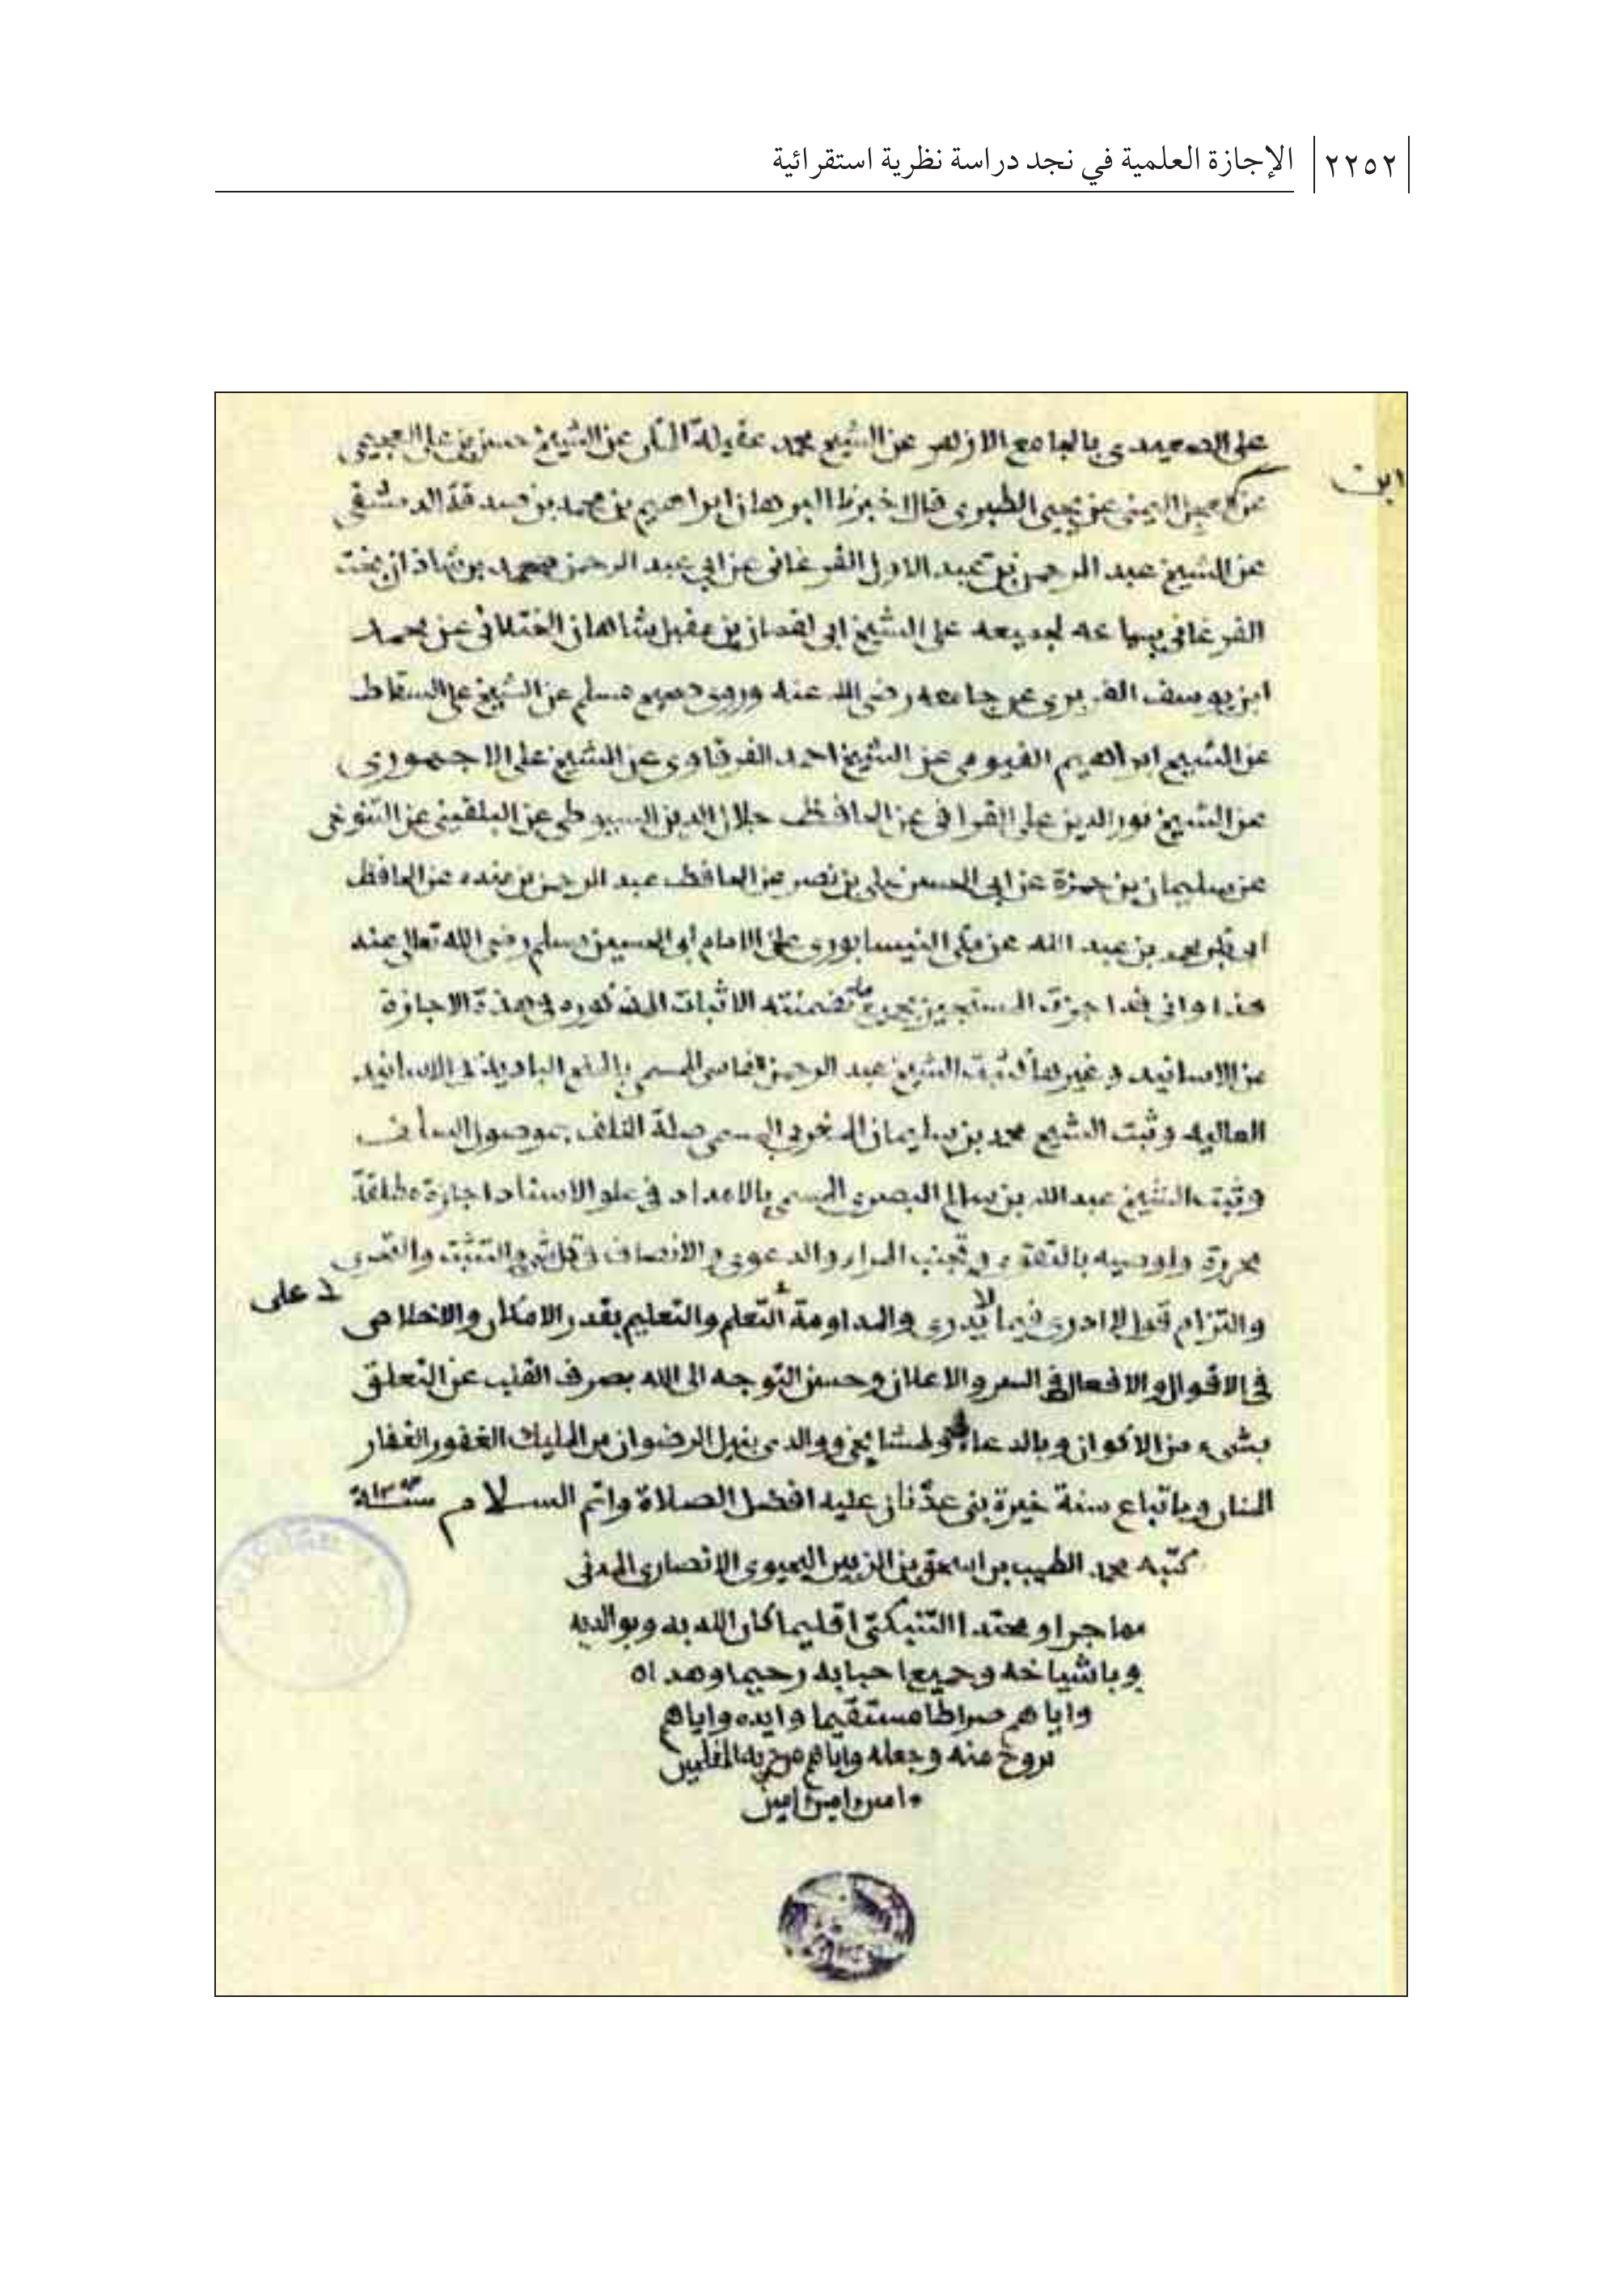 ٢٢٥٢ الإجازة العلمية في نجد دراسة نظرية استقرائية
على الصعيدى بالجامع الازهر عن الشيخ محمد عقيلة المكى عن الشيخ حسن بن على العجيمى
ابن
عن عجل اليمنى عن يحيى الطبرى قال اخبرنا البرهان ابراهيم بن محمد بن صدقة الدمشقى
عن الشيخ عبد الرحمن بن عبد الاول الفرغانى عن ابى عبد الرحمن محمد بن شاذان بخت
الفرغانى بسماعه لجميعه على الشيخ ابى لقمان بن مقبل شاهان الختلانى عن محمد
ابن يوسف الفربرى عن جامعه رضى الله عنه وروى صحيح مسلم عن الشيخ على السقاط
عن الشيخ ابراهيم الفيومى عن الشيخ احمد الفرقاوى عن الشيخ على الاجهورى
عن الشيخ نور الدين على القرافى عن الحافظ جلال الدين السيوطى عن البلقينى عن التنوخى
عن سليمان بن حمزة عن ابى الحسن على بن نصر عن الحافظ عبد الرحمن بن منده عن الحافظ
ابى بكر محمد بن عبد الله عن مكى النيسابورى عن الامام ابى الحسين مسلم رضى الله تعالى عنه
هذا وانى قد اجزت المستجيزين بجميع ما تضمنته الاثبات المذكوره فى هذة الاجازة
من الاسانيد و غيرها كثبت الشيخ عبد الرحمن الفاسى المسمى بالمنح البادية فى الاسانيد
العاليه وثبت الشيخ محمد بن سليمان المغربى المسمى صلة الخلف بموصول السلف
وثبت الشيخ عبد الله بن سالم البصرى المسمى بالامداد فى علو الاسناد اجازة مطلقة
محررة واوصيه بالتقوى وتجنب المراء والدعوى والانصاف والتثبت والتحرى
والتزام قول لا ادرى فيما لا يدرى والمداومة على التعلم والتعليم بقدر الامكان والاخلاص
فى الاقوال والافعال فى السر والاعلان وحسن التوجه الى الله بصرف القلب عن التعلق
بشىء من الاكوان وبالدعاء ولمشايخى ووالدى بنيل الرضوان من المليك الغفور الغفار
المنان وباتباع سنة خيرة بنى عدنان عليه افضل الصلاة واتم السلام
كتبه محمد الطيب بن اسحق بن الزبير الانصارى المدنى
مهاجرا ومحتدا التنبكتى اقليما كان الله به وبوالديه
وباشياخه وجميع احبابه رحيما وهداه
واياهم صراطا مستقيما وايده واياهم
بروح منه وجعله واياهم من حزبه المفلحين
امين امين امين